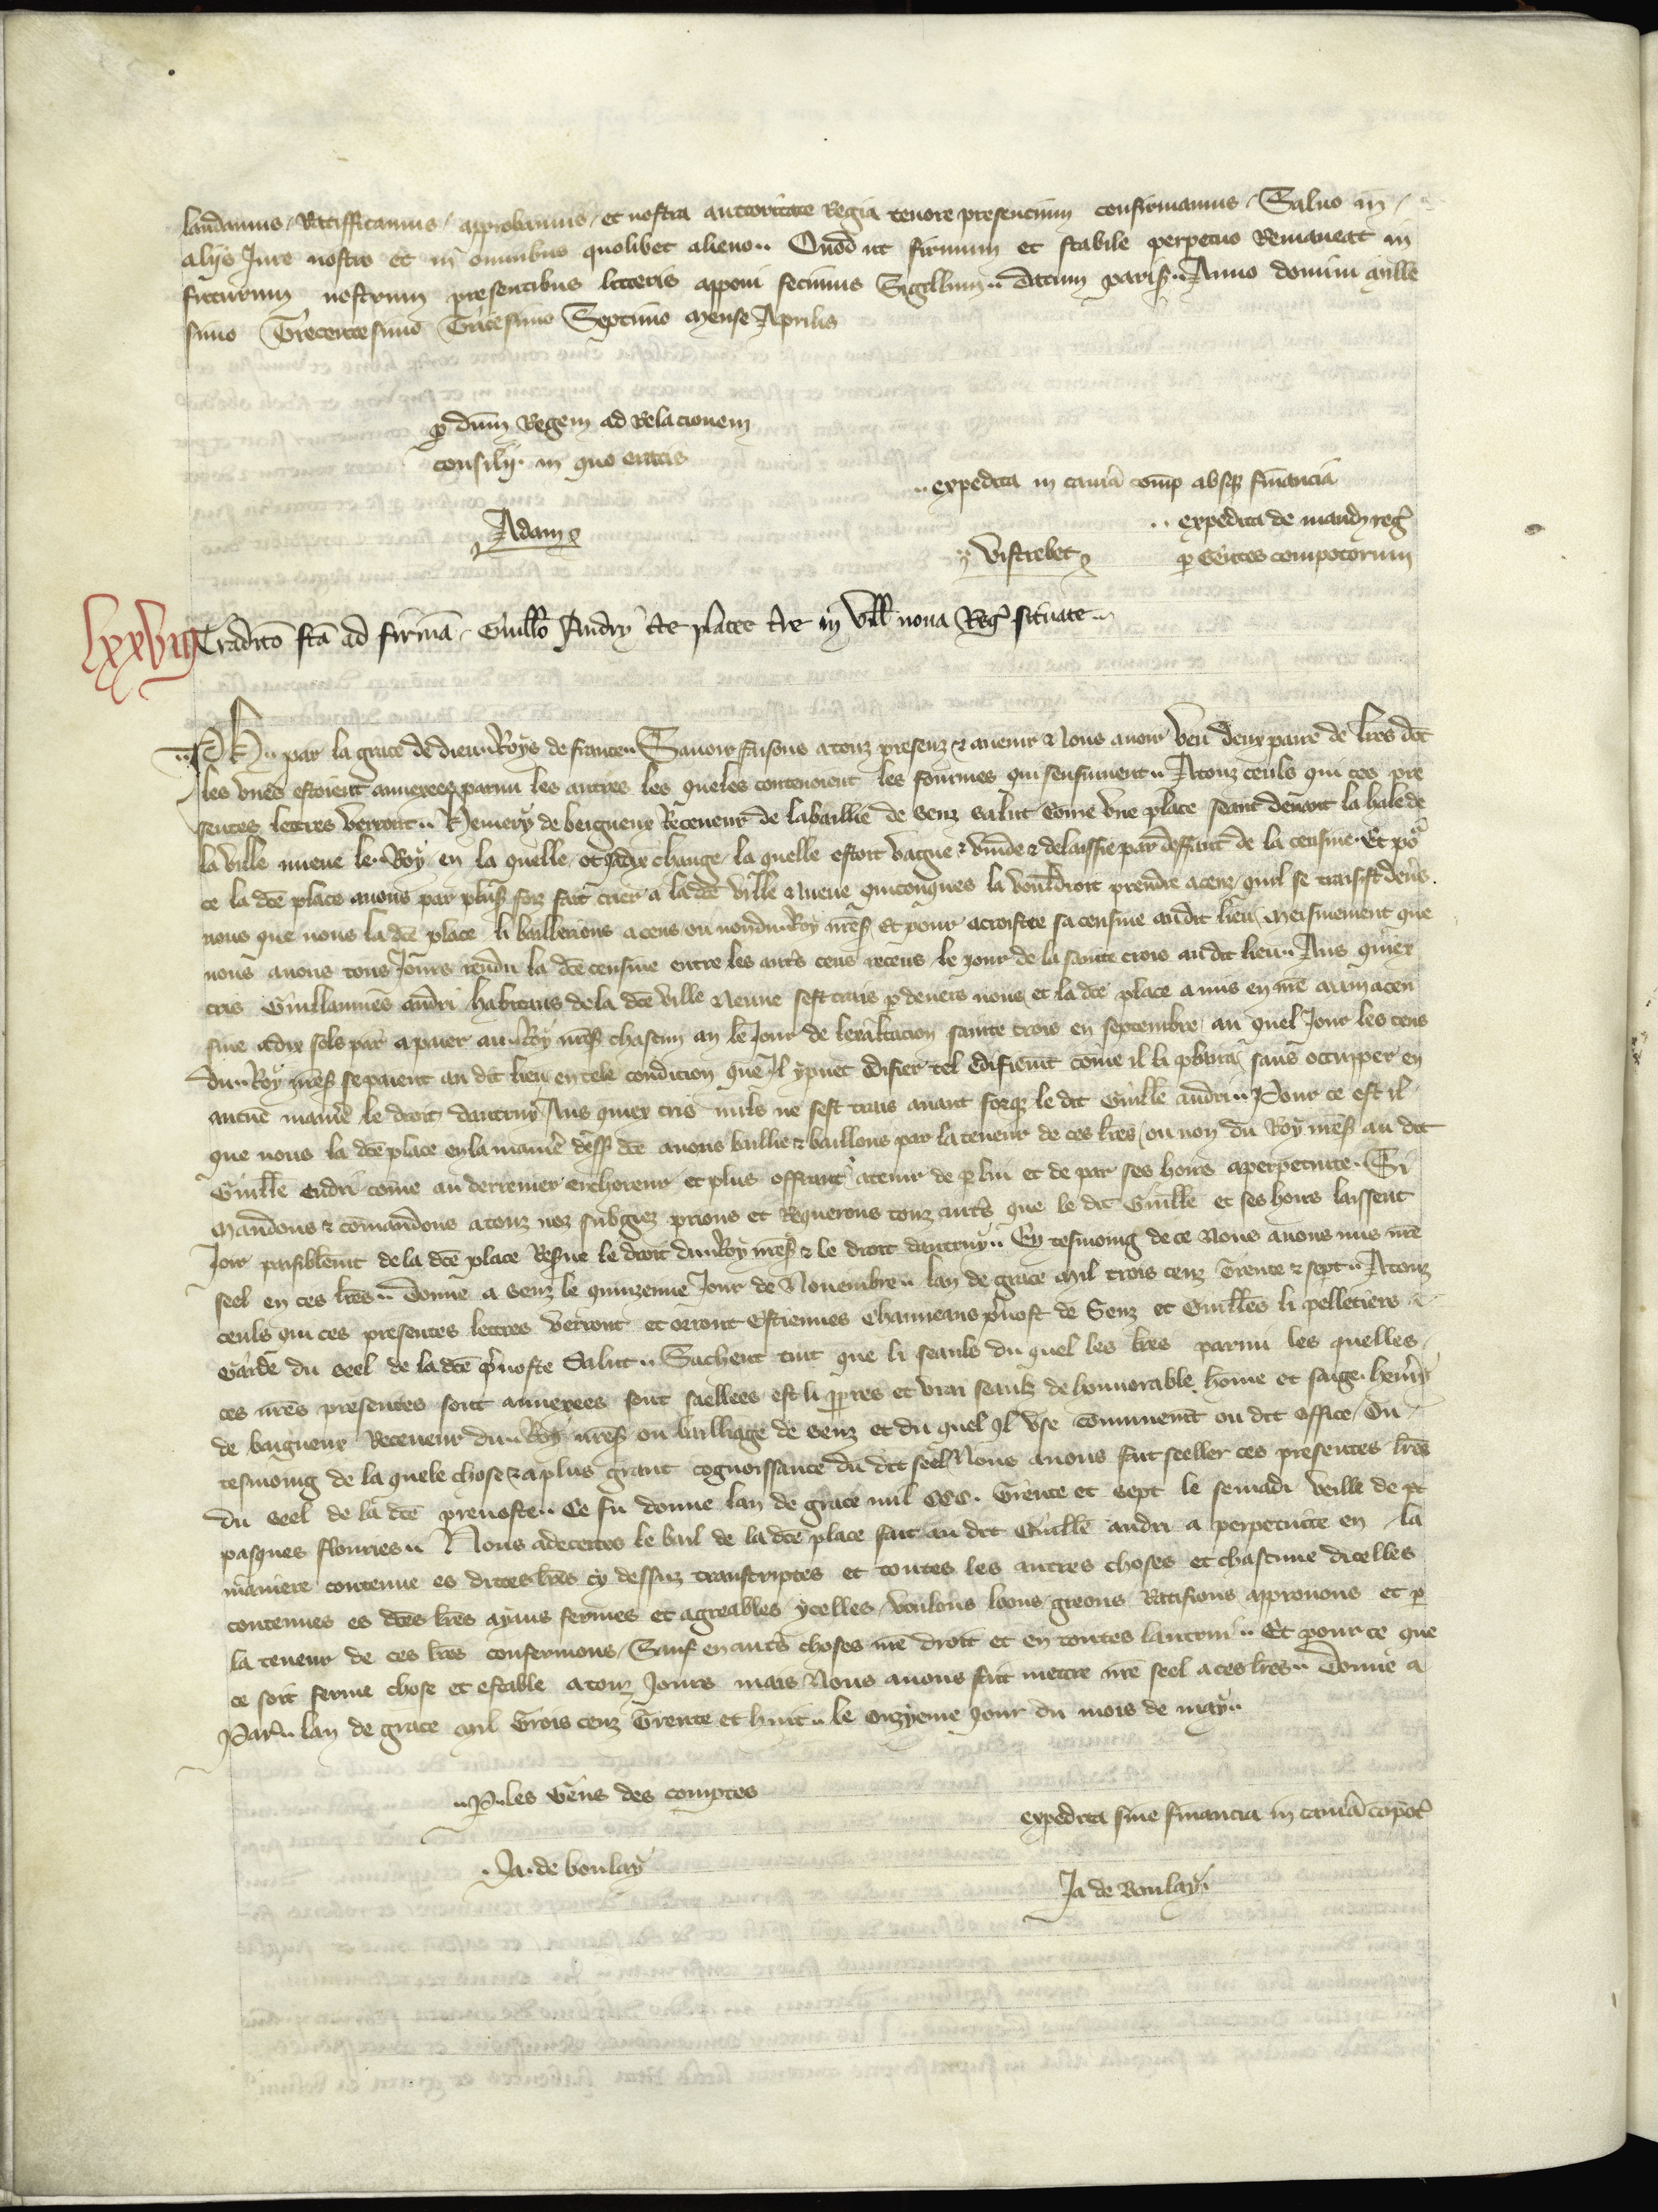 laudamus / Ratifficamus / approbamus / et nostra auctoritate Regia tenore presencium confirmamus / Saluo in /
aliis Jure nostro et in omnibus quolibet alieno ·· Quod ut firmum et stabile perpetuo Remaneat in
futurum nostrum presentibus litteris apponi fecimus Sigillum ·· datum parisꝰ ·· Anno domini mille
simo Trecentesimo Tricesimo Septimo mense Aprilis
ꝑ dnm̄ Regem ad Relacionem
consilij · in quo eratis
·· expedita in camā comp̄ absqꝫ financia
Adam
·· expedita de mand̄ reḡ
Vistrebet
ꝑ Gentes compotorum
lxxviij
Tradicō fcā ad firmā Guillō Andry cuiꝰ platee sitē in villa noua Reḡ situate ··
·· Ph ·· par la grace de dieu ·· Roys de france ·· Sauoir faisons a touz presenz & auenir & Nous auoir veu deux paire de lr̄es dōt
les vnes estoient annexees parmi les autres les queles contenoient les fourmes qui sensiuuent ·· A touz ceuls qui ces pre
sentes lettres verront ·· Hemery de beigneux Receueur de labaillie de Senz salut Come vne place seant deuant la hale de
la ville nueue le ·· Roy / en la quelle / ot Jadix change / la quelle estoit vague & vuide & delaissie par deffaut de la censiue · Et poʳ
ce la dc̄e place auons par plusꝰ foiz fait crier a la dc̄e ville & Nueue quiconques la vouldroit prendre a cens / quil se traisist deūs
nous que nous la dc̄e place li bailleriens a cens ou nondu ·· Roy nr̄eꝰ Et pour acroistre sa censiue audit lieu / meismement que
nous auons tous Jours rendu la dc̄e censiue entre les autꝰs cens receus le jour de la sainte crois au dit lieu ·· Aus quiex
cris Guillaumes andri habitans de la dc̄e ville & Neuue sest trais ꝑ deuers nous et la dc̄e place a mis en nr̄e main a cen
siue a dix sols par̄ a paier au ·· Roy nr̄eꝰ chascun an le Jour de lexaltacion sainte crois en septembre / au quel Jour les cens
du ·· Roy nr̄eꝰ se paient au dit lieu en tele condicion que Il y puet edifier tel edifiem̄t come il li plaira sans occupper en
aucūe manīe le droit dautruy Aus quiex cris nuls ne sest trais auant forqꝫ le dit Guillē andri ·· Pour ce est il
que nous la dc̄e place en la manīe dessꝰ dc̄e auons baillie & baillons par la teneur de ces lr̄es / ou non du Roy nr̄eꝰ au dit
Guillē Andri come au derrenier encherieur et plus offrant a tenir de ꝑ lui et de par ses hoirs a perpetuite · Si
Mandons & comandons a touz noz subgiez prions et Requerons touz autꝰs que le dit Guillē et ses hoirs laissent
Joir paisiblem̄t de la dc̄e place Resᵘe le droit du ·· Roy nr̄eꝰ & le droit dautruy ·· En tesmoing de ce Nous auons mis nr̄e
seel en ces lr̄es ·· Donne a Senz le quinzeime Jour de Nouembre ·· lan de grace Mil trois cenz Trente & sept ·· A touz
ceuls qui ces presentes lettres verront et orront Estiennes Chauueaus p̄uost de Senz et Guillēs li pelletiers
Garde du seel de la dc̄e p̄uoste Salut ·· Sachent tuit que li seauls du quel les lr̄es parmi les quelles
ces nr̄es presentes sont annexees sont saellees est li ꝓpres et vrai seaulz de honnorable home et saige henry
de baigneux Receueur du ·· Roy nr̄eꝰ ou bailliage de Senz et du quel Il vse communem̄t ou dit office / Ou
tesmoing de la quele chose & a plus grant cognoissance du dit seel Nous auons fait seeller ces presentes lr̄es
du seel de la dc̄e preuoste ·· Ce fu donne lan de grace mil CCC · Trente et sept le semadi veille de
pasques flouries ·· Nous adecertes le bail de la dc̄e place fait au dit Guillē andri a perpetuite en la
maniere contenue es dittes lr̄es cy dessuz transcriptes et toutes les autres choses et chascune dicelles
contenues es dc̄es lr̄es ayans fermes et agreables ycelles / voulons loons / greons Ratifions approuons et ꝑ
la teneur de ces lr̄es confermons / Sauf en autꝰs choses nr̄e droit et en toutes lautrui ·· Et pour ce que
ce soit ferme chose et estable a touz Jours mais Nous auons fait mettre nr̄e seel a ces lr̄es ·· Donne a
Parꝰ ·· lan de grace Mil Trois cenz Trente et huit ·· le onzyeme Jour du mois de may ··
·· P ·· les Gens des comptes
expedita sine financia in camā compot̄
· Ja · de boulay
Ja de Boulay